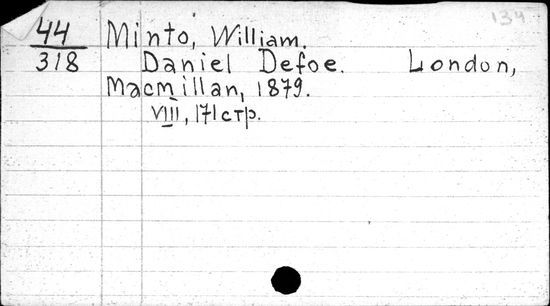 134
44 Minto, William.
318 Daniel Defoe. London,
Macmillan, 1879.
VIII, 171 стр.